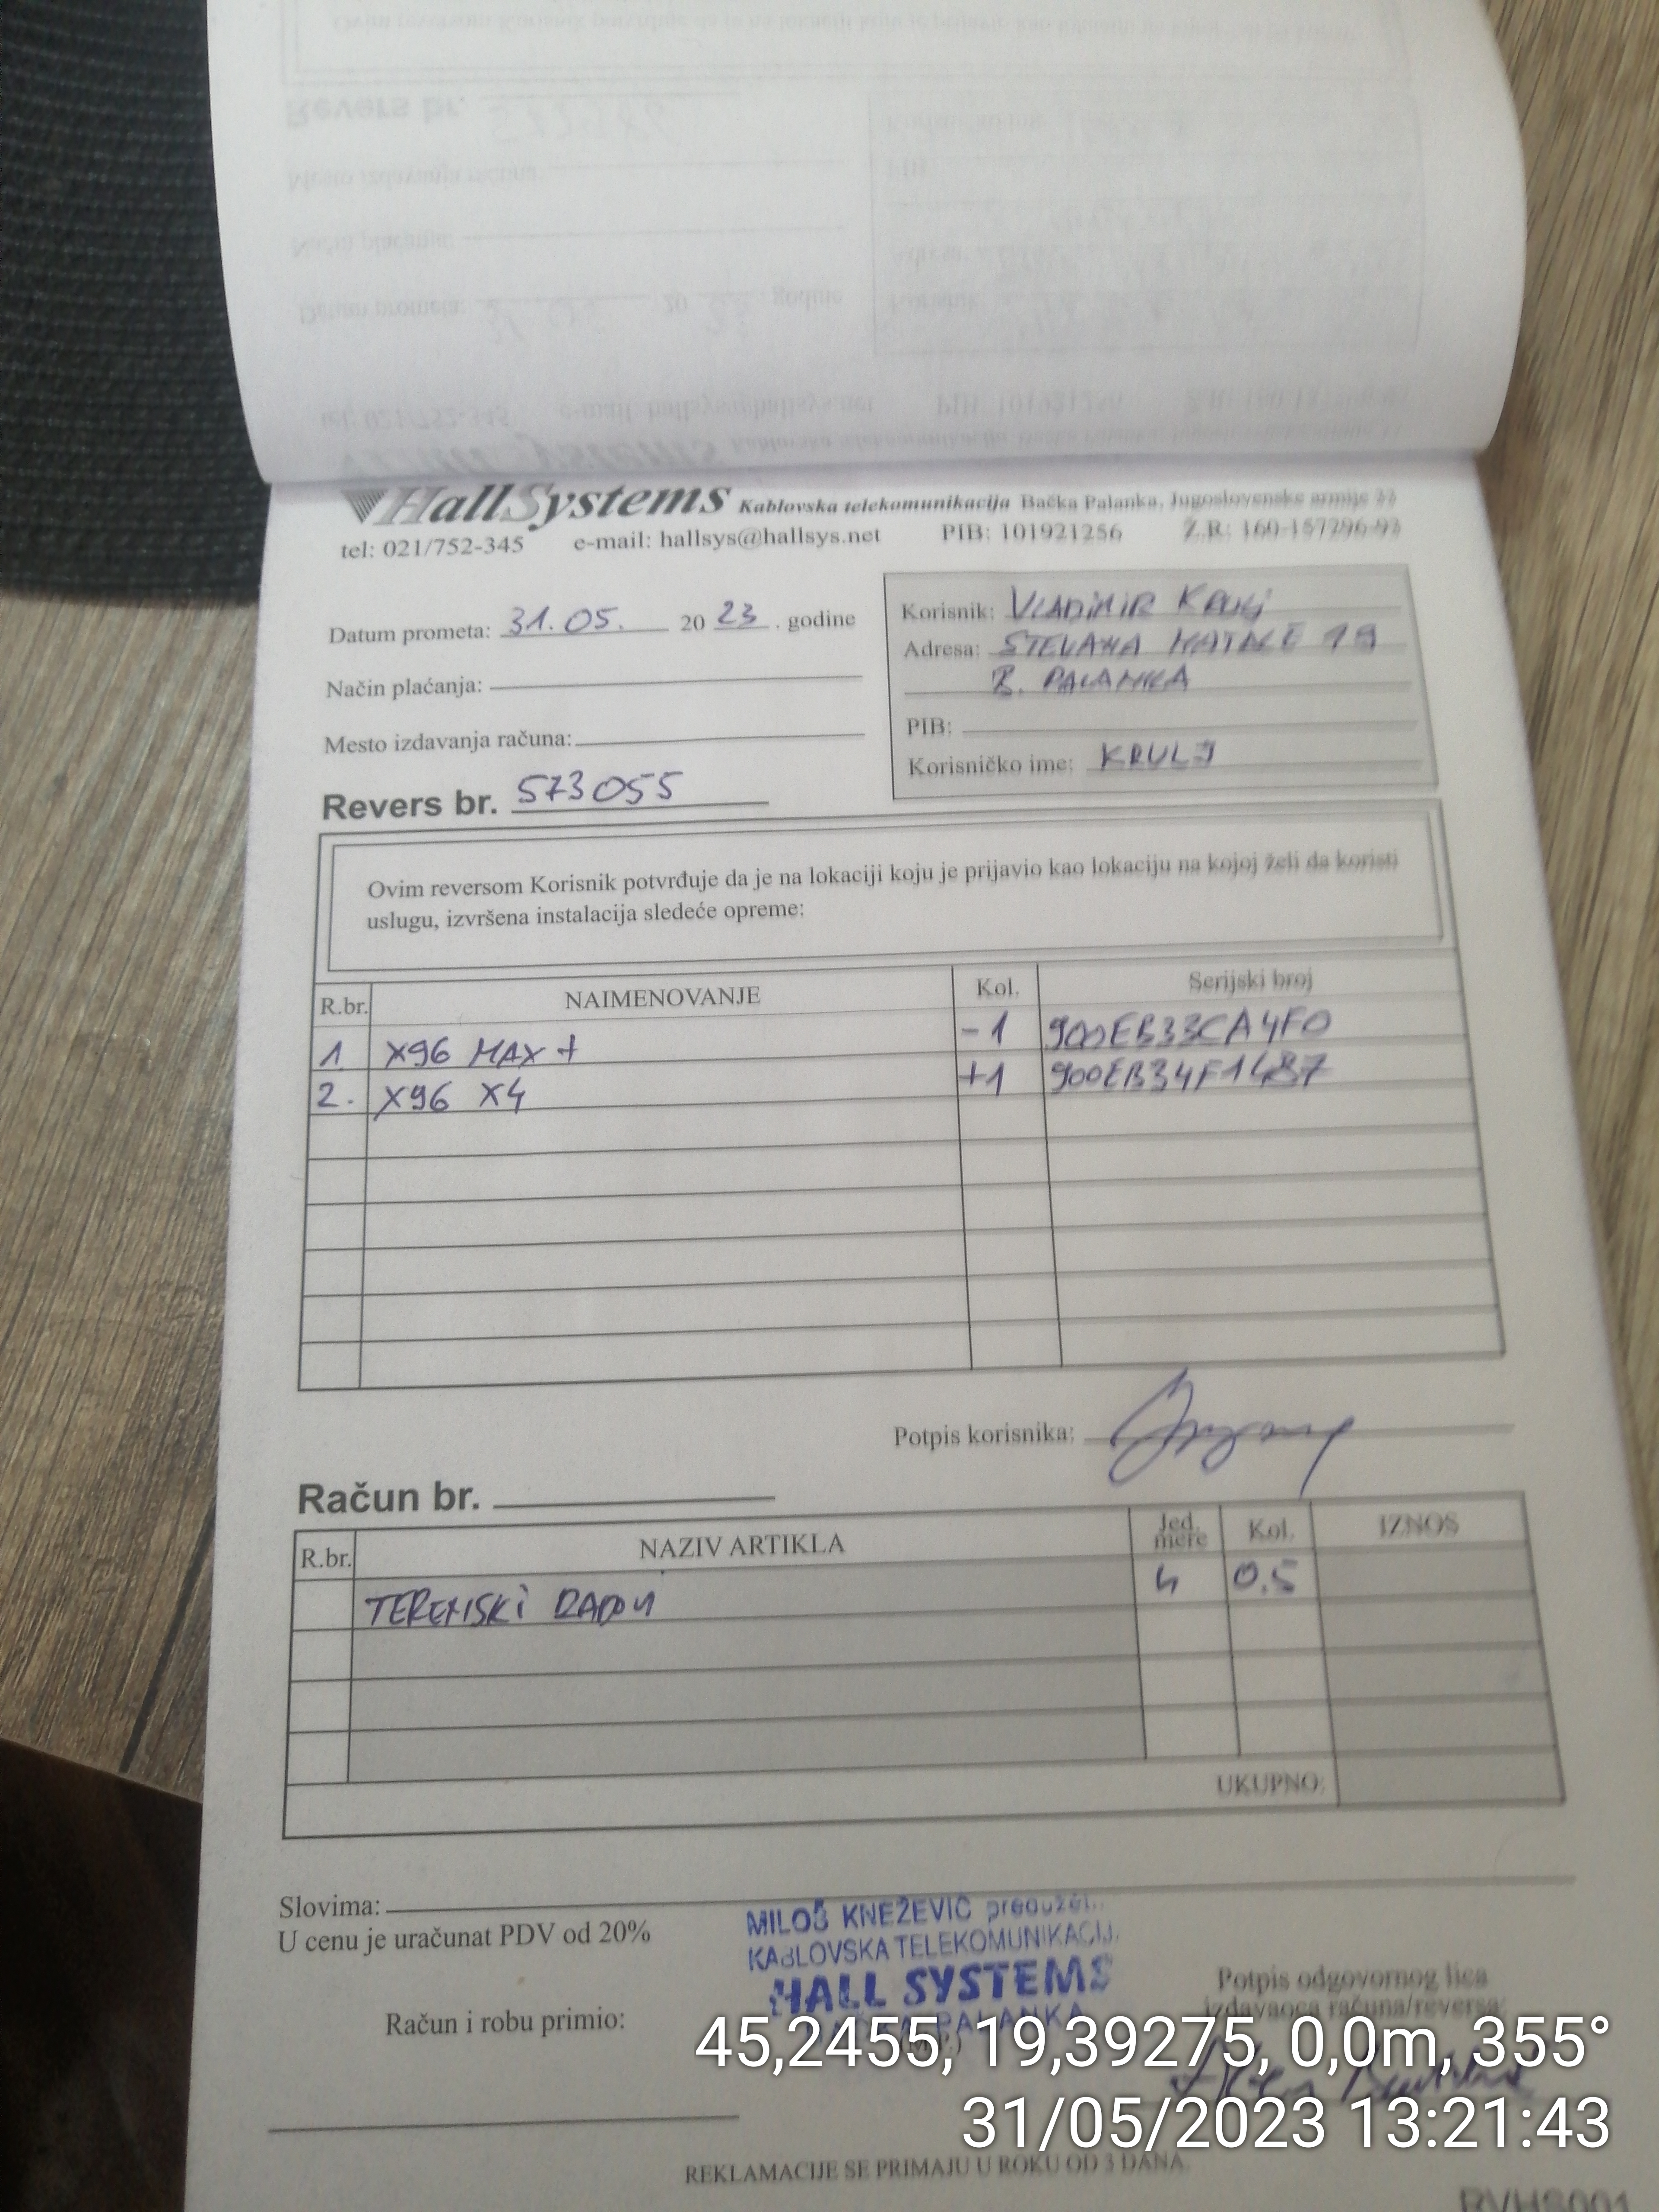 HallSystems Kablovska telekomunikacija Bačka Palanka, Jugoslovenske armije
tel: 021/752-345 e-mail: hallsys@hallsys.net PIB: 101921256 Ž.R: 160-157296-93
Datum prometa: 31.05. 20 23 . godine
Način plaćanja:
Mesto izdavanja računa:
Revers br. 573055
Korisnik: VLADIMIR KRULJ
Adresa: STEVANA 19
B. PALANKA
PIB:
Korisničko ime: KRULJ
Ovim reversom Korisnik potvrđuje da je na lokaciji koju je prijavio kao lokaciju na kojoj želi da koristi
uslugu, izvršena instalacija sledeće opreme:
R.br. NAIMENOVANJE Kol. Serijski broj
1 X96 MAX + -1 900EB33CA4F0
2. X96 X4 +1 900EB34F1487
Potpis korisnika:
Račun br.
R.br. NAZIV ARTIKLA Jed. mere Kol. IZNOS
TERENSKI RADOVI h 0.5
UKUPNO:
Slovima:
U cenu je uračunat PDV od 20%
MILOŠ KNEŽEVIĆ
KABLOVSKA TELEKOMUNIKACIJ
HALL SYSTEMS
PALANKA
Potpis odgovornog lica
izdavaoca računa/reversa
Račun i robu primio:
45,2455, 19,39275, 0,0m, 355°
31/05/2023 13:21:43
REKLAMACIJE SE PRIMAJU U ROKU OD 3 DANA.